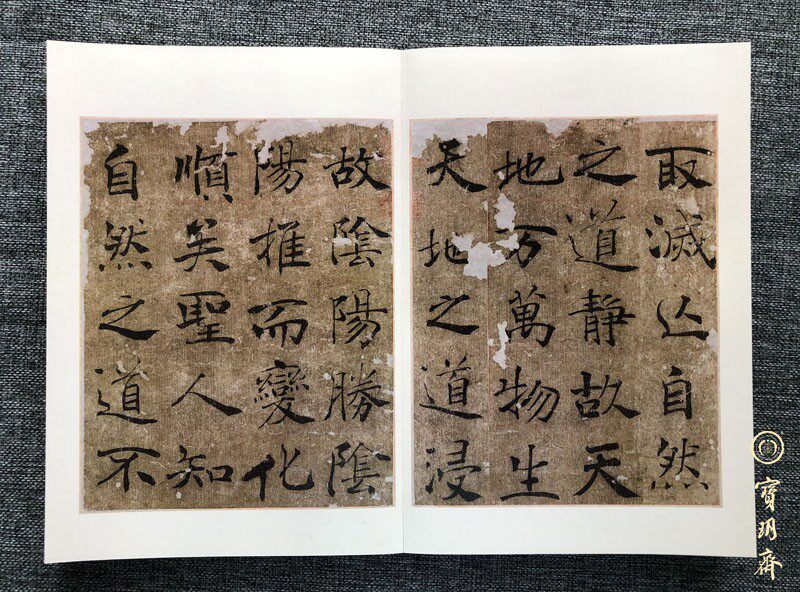 取滅亾自然
之道靜故天
地万萬物生
天地之道浸
故陰陽勝陰
陽推而變化
順矣聖人知
自然之道不
寶玥齋